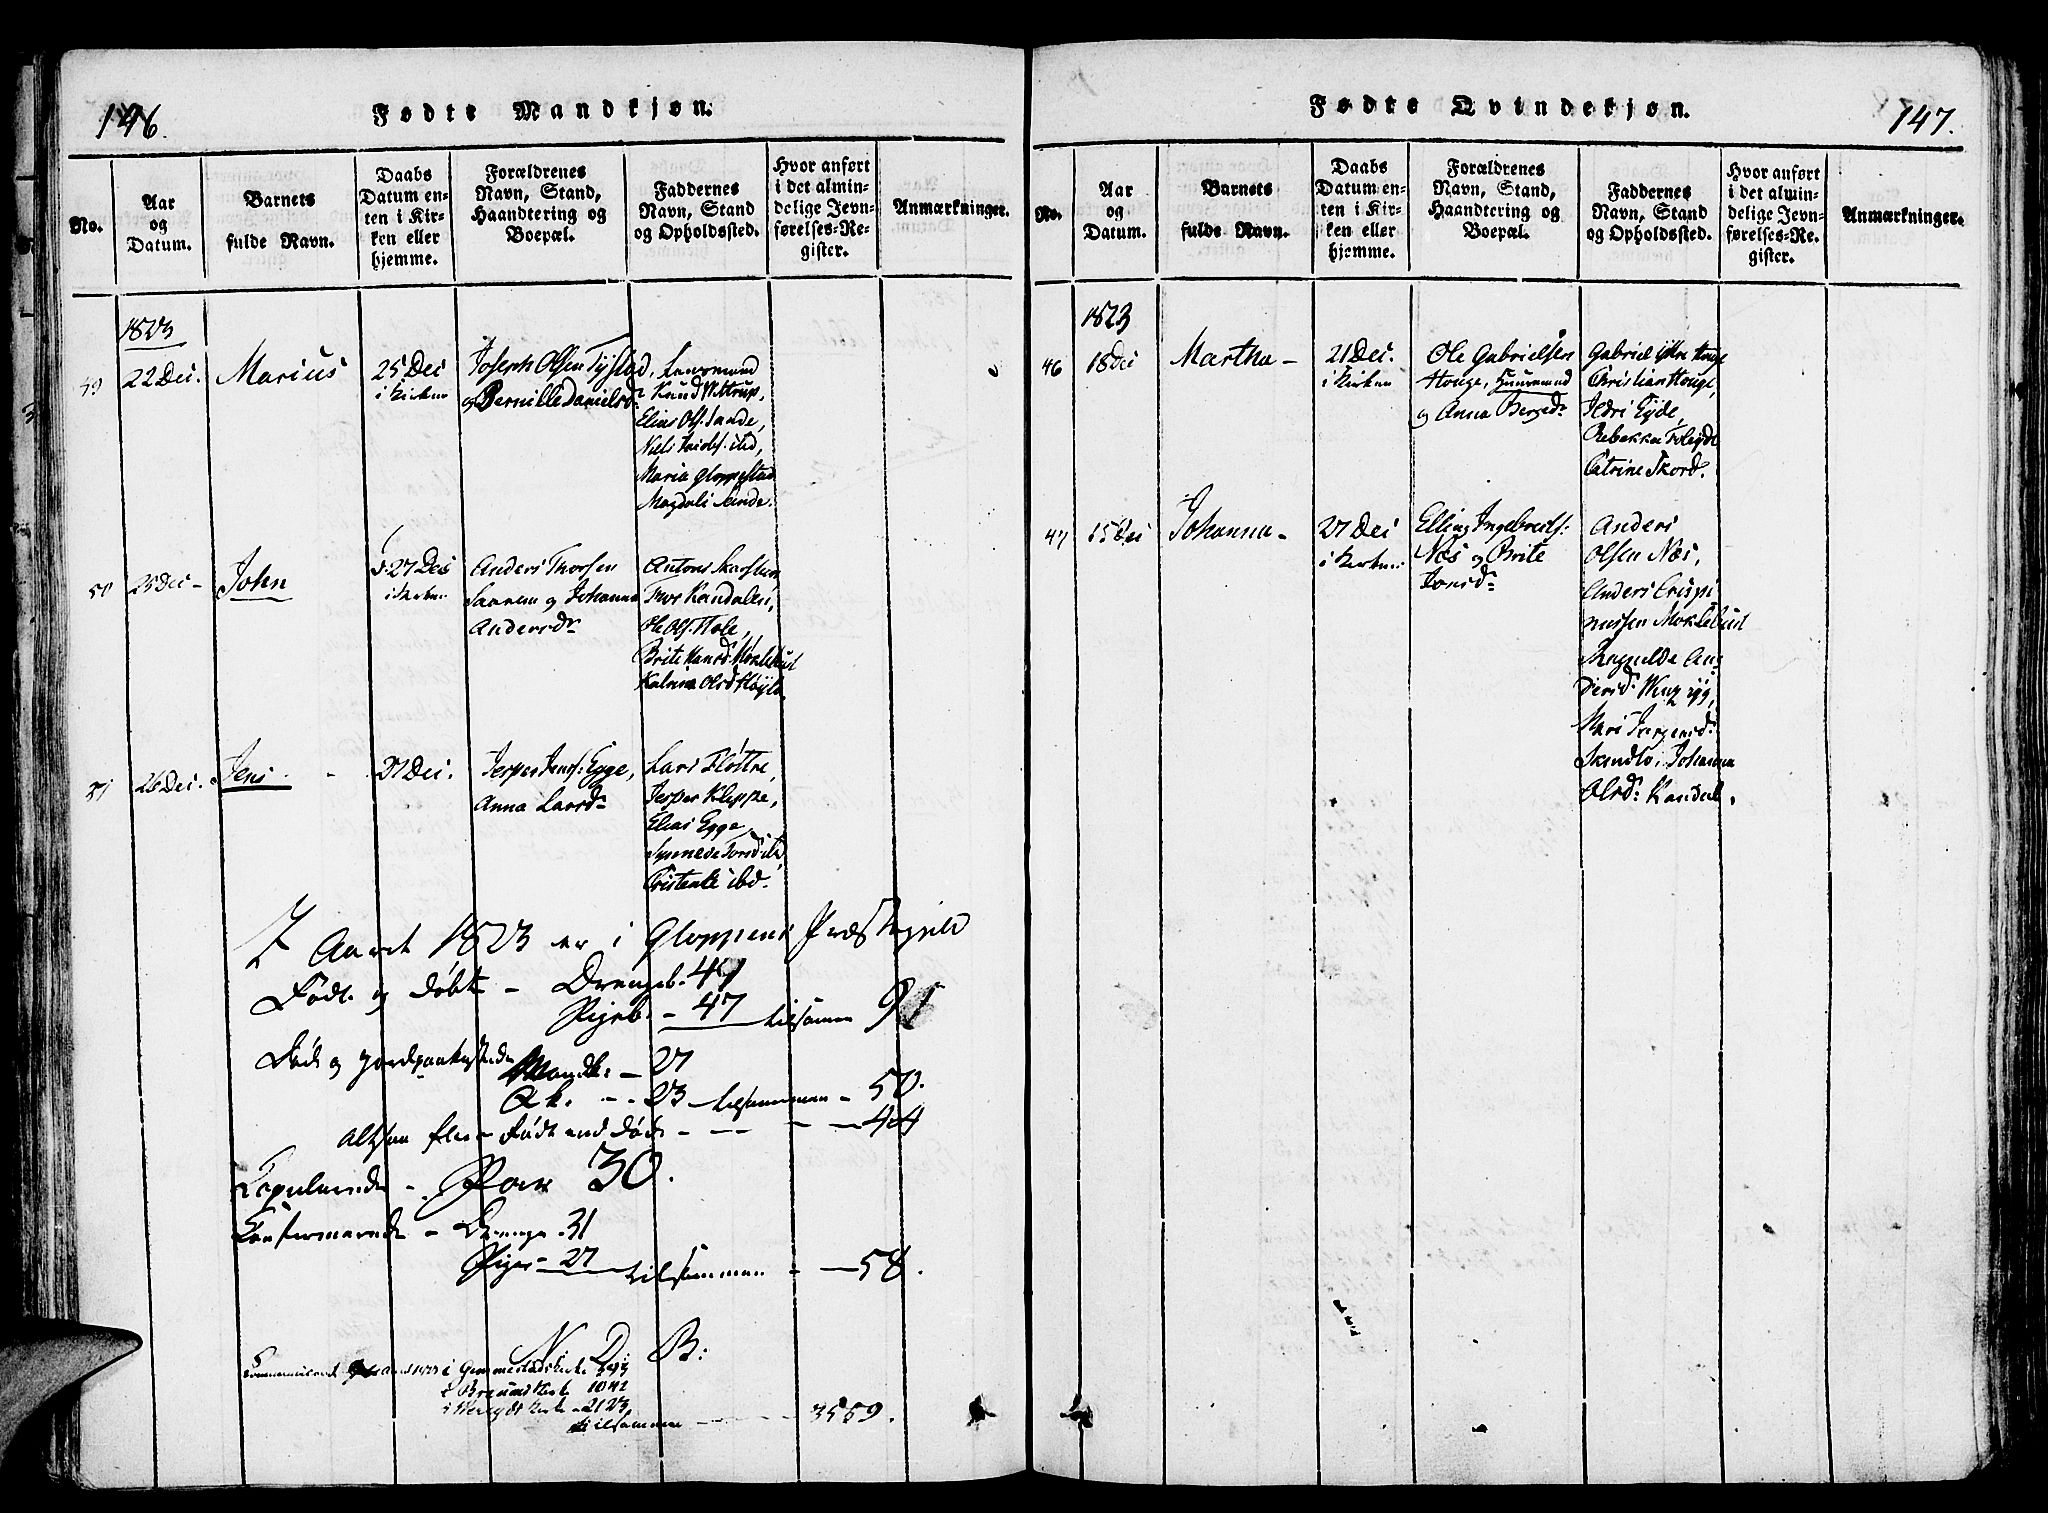 146.
Fødte Mandkjøn.
No.
Aar
og
Datum.
Barnets
fulde Navn.
Daabs
Datum en-
ten i Kir-
ken eller
hjemme.
Forældrenes
Navn, Stand,
Haandtering og
Boepæl.
Faddernes
Navn, Stand
og Opholdssted.
Hvor anført
i det almin-
delige Jevn-
førelses-Re-
gister.
Anmærkninger.
1823
49
22 Dec.
Marius
25 Dec
i Kirken
Joseph Olsen Tystad,
og Pernille Danielsdr
Lensmand
Knud
Elias Ols. Sande,
Niels
Maria Gloppestad
Magdeli Sande.
50
25 Dec -
John
27 Dec
i Kirken
Anders Thorsen
og Johanna
Andersdr
Antons
Ole Ols.
Brite Hansd. Moklebust
Olsd
51
26 Dec.
Jens - -
27 Dec.
Jesper Jens: Egge,
Anna Larsdr
Lars Fløttre,
Jesper Kleppe,
Elias Egge
ibd.
I Aaret 1823 er i Gloppens Præstegjeld
Født og døbte - Drengeb. 47
Pigeb. - 47 tilsamen 91
Død og jordpaakastede
Mandk: - 27
Qk. - - 23 tilsammen - 50.
Altsaa flere Født end død - - - - 44
Copulerede - Par 30.
Confirmerede - Drenge - 31
Piger - 27 tilsammen - 58.
N. D. B:
i Gimmestadskirke
i Breumskirk 1042
Kirke - 2123
tilsammen - - - 3559.
147.
Fødte Qvindekjøn.
No.
Aar
og
Datum.
Barnets
fulde Navn.
Daabs
Datum en-
ten i Kir-
ken eller
hjemme.
Forældrenes
Navn, Stand,
Haandtering og
Boepæl.
Faddernes
Navn, Stand
og Opholdssted.
Hvor anført
i det almin-
delige Jevn-
førelses-Re-
gister.
Anmærkninger.
1823
46
18 Dec
Martha -
21 Dec.
i Kirken
Ole Gabrielsen
Houge, Huusmand
og Anna Bergedr
Gabriel Houge
Christian Houge,
Ildri Eyde,
Rebekka
Catrine Skordr.
47
15 Dec
Johanna -
27 Dec
i Kirken
Elling Ingebretls:
Næs og Brite
Jonsdr
Anders
Olsen Næs,
Anders Crispi
nussen Moklebust
Ragnilde An
dersd:
Mari Jørgensd:
Johanna
Olsdr Kandal.